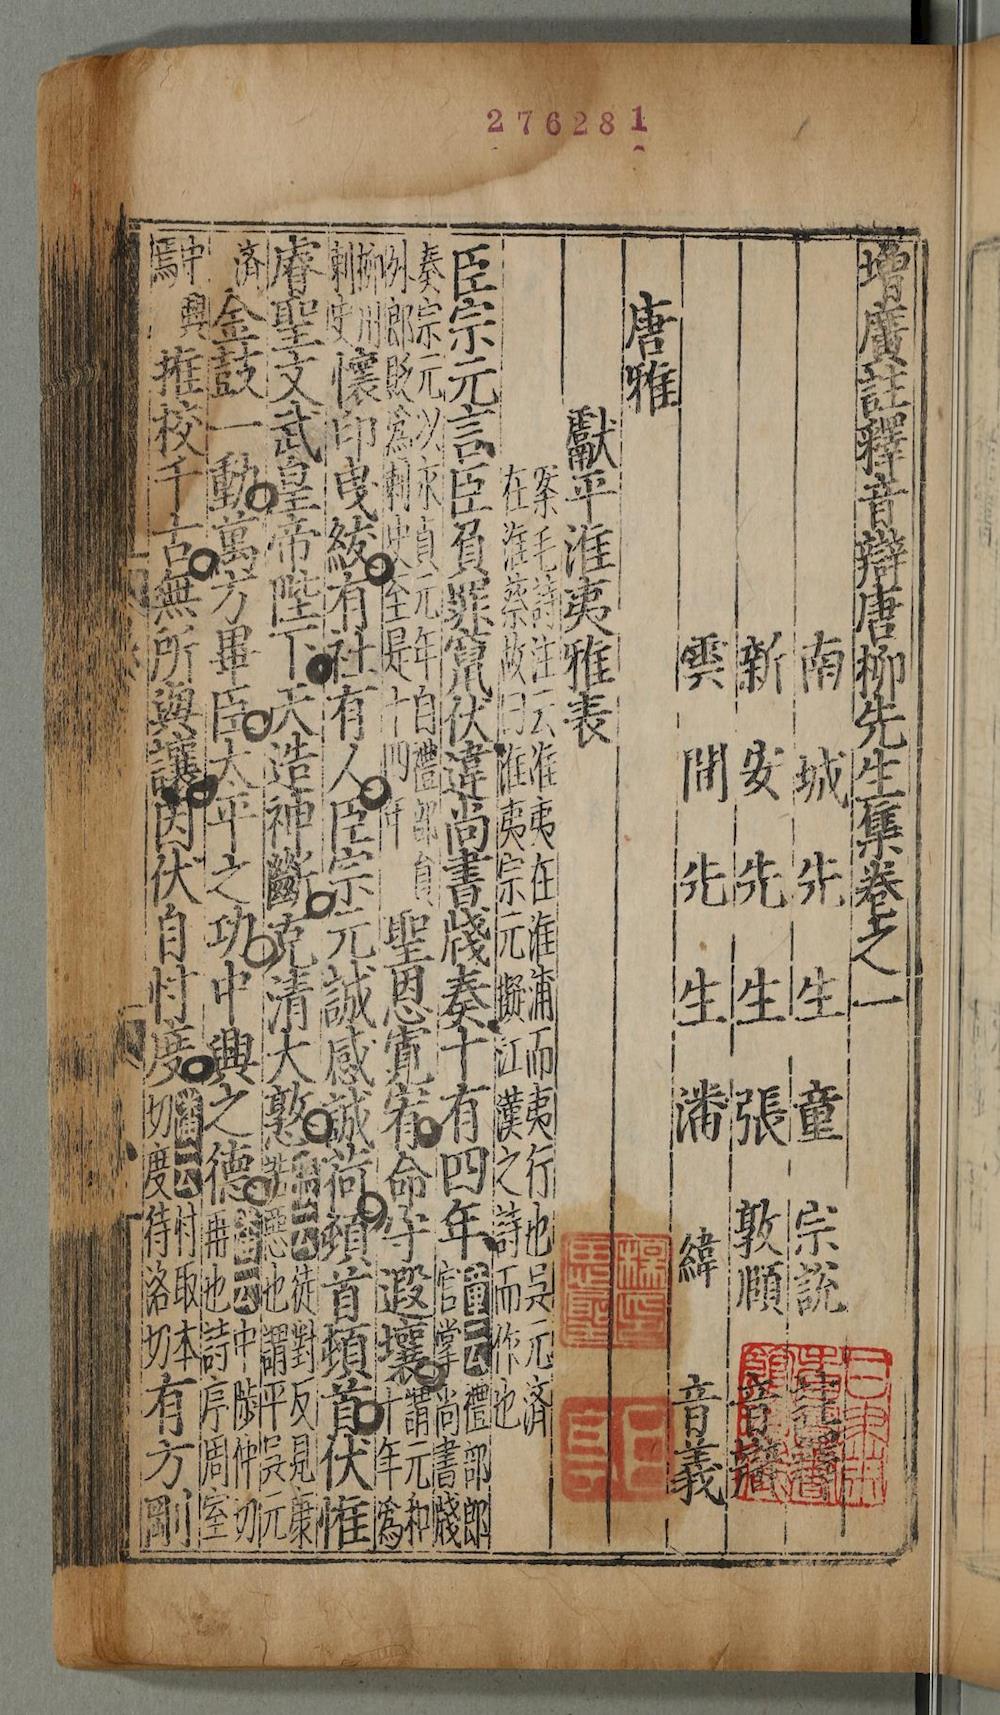 276281
增廣註釋音辯唐柳先生集卷之一
南城先生童宗說註釋
新安先生張敦頤音辯
雲間先生潘緯音義
唐雅
獻平淮夷雅表
案毛詩注云淮夷在淮浦而夷行也吳元濟
在淮蔡故曰淮夷宗元擬江漢之詩而作也
臣宗元言臣負罪竄伏違尚書牋奏十有四年童云禮部郎官掌尚書牋
奏宗元以永貞元年自禮部員外郎貶爲刺史至是十四年聖恩寬宥命守遐壤謂元和十年爲
柳州刺史懷印曳紱有社有人臣宗元誠感誠荷頓首頓首伏惟
睿聖文武皇帝陛下天造神斷克清大憝童云徒對反見康誥惡也謂平吳元
濟金鼓一動萬方畢臣太平之功中興之德童云中陟仲切再也詩序周室
中興焉推校千古無所與讓因伏自忖度潘云忖取本切度待洛切有方剛